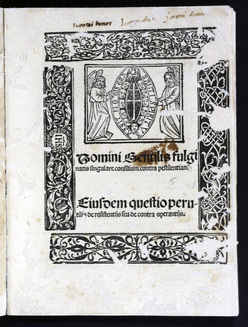 Domini Gentilis fulgi
natis singulare consilium contra pestilentiam.
Eiusdem questio peru
tilis de resistentijs seu de contra operantijs.
5